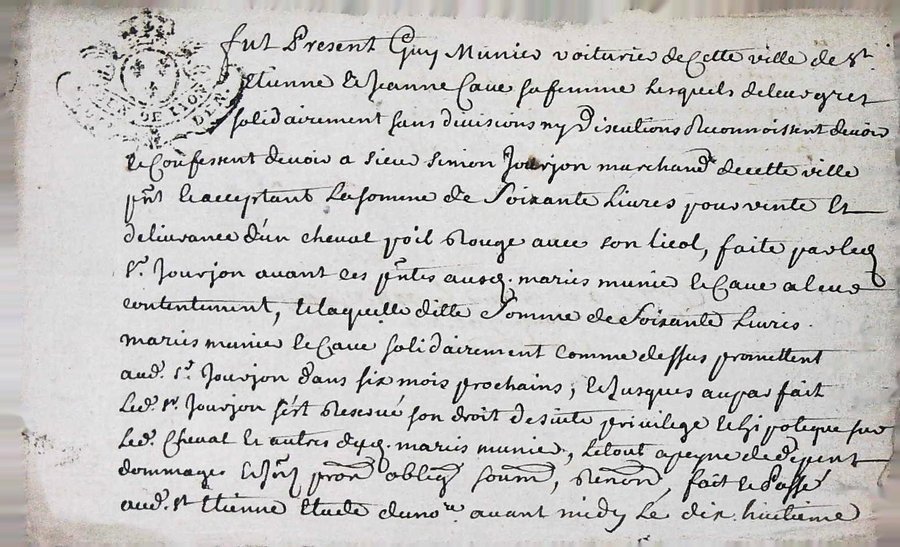 fut Present Guy Munier voiturier de Cette ville de St
Etienne et Jeanne Cave sa femme Lesquels de leur gret
solidairement sans divisions ny Discutions Reconnoissent devoir
et Confessent devoir a sieur simon Jourjon marchand de cette ville
pnt et acceptant La somme de Soixante Livres pour vente Et
delivrance d'un cheval poil Rouge avec son licol, faite par led
Sr. Jourjon avant ces pntes ausd. maries munier et Cave a leur
contentement, et laquelle ditte Somme de Soixante Livres.
maries munier et Cave solidairement comme dessus promettent
aud. Sr. Jourjon dans six mois prochains, et Jusques au parfait
Led. Sr. Jourjon s'est Reservé son droit de suite privilege et hipoteque sur
Led. Cheval et autres d'yd. maries munier, Le tout a peyne de Depent
dommages et prom obliga soum, Renon, fait et Passé
aud. St Etienne Etude du no.re avant midy Le dix huitieme